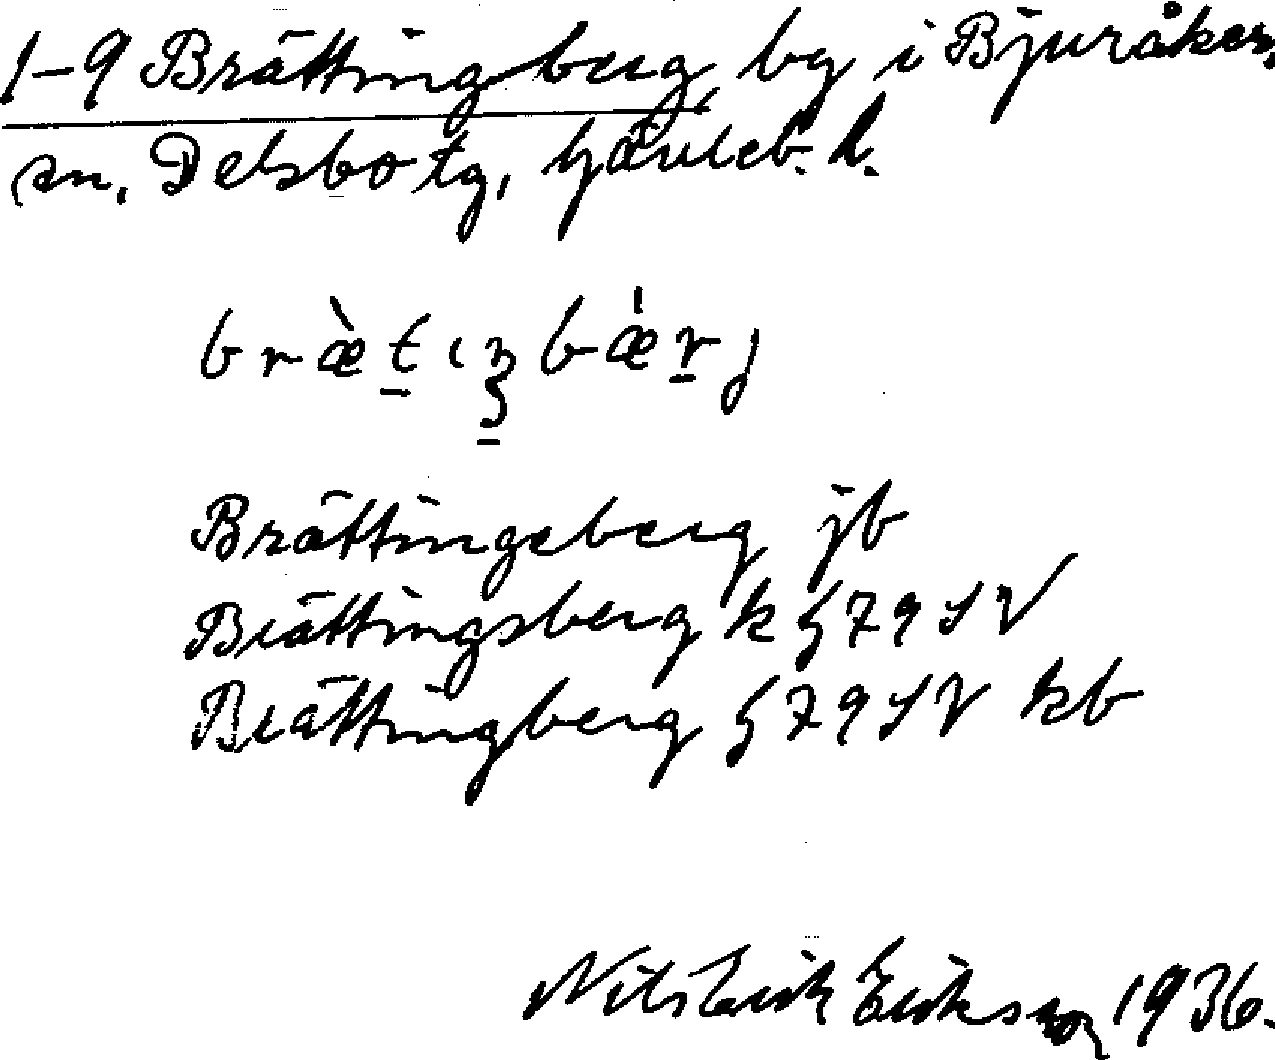 1-9 Brättingberg, by i Bjuråkers
sn. Delsbo tg, Gävleb. l.
bræ̀tıŋbæ̍rj
Brättingeberg jb
Brättingsberg k G 79 SV
Brättingberg G 79 SV kb
Nils Erik Eriksson 1936.